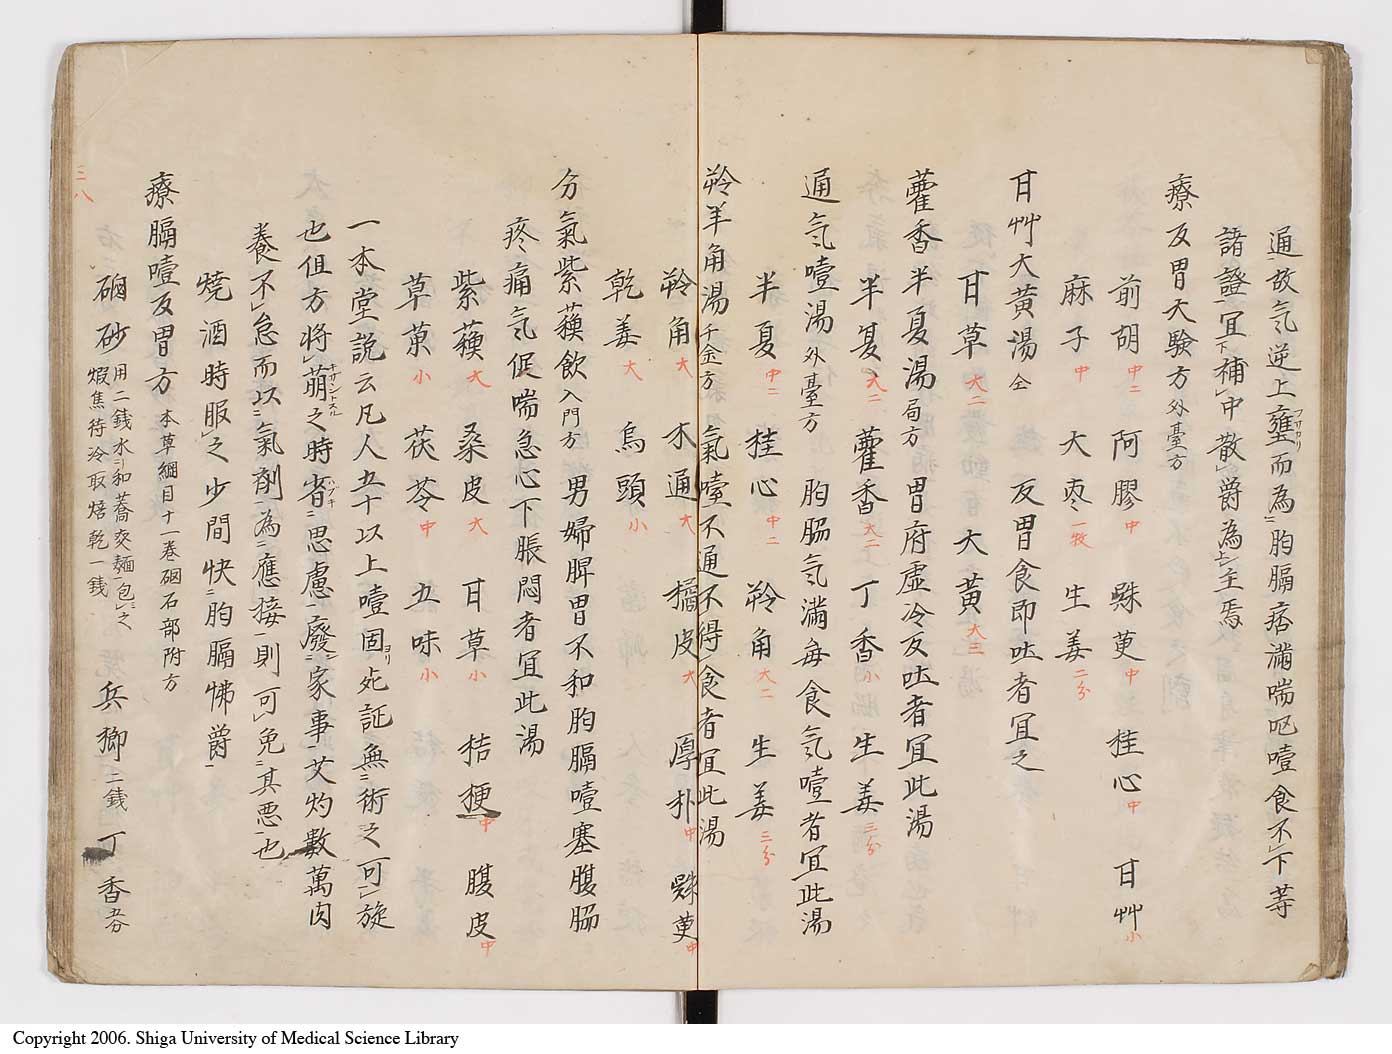 通故气逆上壅而為胸膈痞滿喘咜噎食不下等
諸證宜補中散爵為主焉
療反胃大驗方外臺方
前胡中二 阿膠中 䑕萸中 桂心中 甘艸小
麻子中 大枣一牧 生姜二分
甘艸大黄湯仝 反胃食即吐者宜之
甘草大二 大黄大三
藿香半夏湯局方 胃府虚冷反吐者宜此湯
半夏大二 藿香大二 丁香小 生姜三分
通气噎湯外臺方 胸脇气滿毎食气噎者宜此湯
半夏中二 桂心中二 羚角大二 生姜三分
羚羊角湯千金方 氣噎不通不得食者宜此湯
羚角大 木通大 橘皮大 厚朴中 䑕萸中
乾姜大 烏頭小
分氣紫蘓飲入門方 男婦脾胃不和胸膈噎塞腹脇
疼痛气促喘急心下脹悶者宜此湯
紫蘓大 桑皮大 甘草小 桔梗中 腹皮中
草菓小 茯苓中 五味小
一本堂説云凡人五十以上噎固ヨリ死証無術之可旋
也但方將萌キザシントスル之時省ハブキ思慮廢家事艾灼數萬肉
養不急而以氣剤為應接則可免其悪也
焼酒時服之少間快胸膈怫爵
療膈噎反胃方本草綱目十一巻硇石部附方
硇砂用二銭水ニ和蕎麥麺包之 煆焦待冷取焙乾一銭 兵榔二銭 丁香
三八
Copyright 2006. Shiga University of Medical Science Library